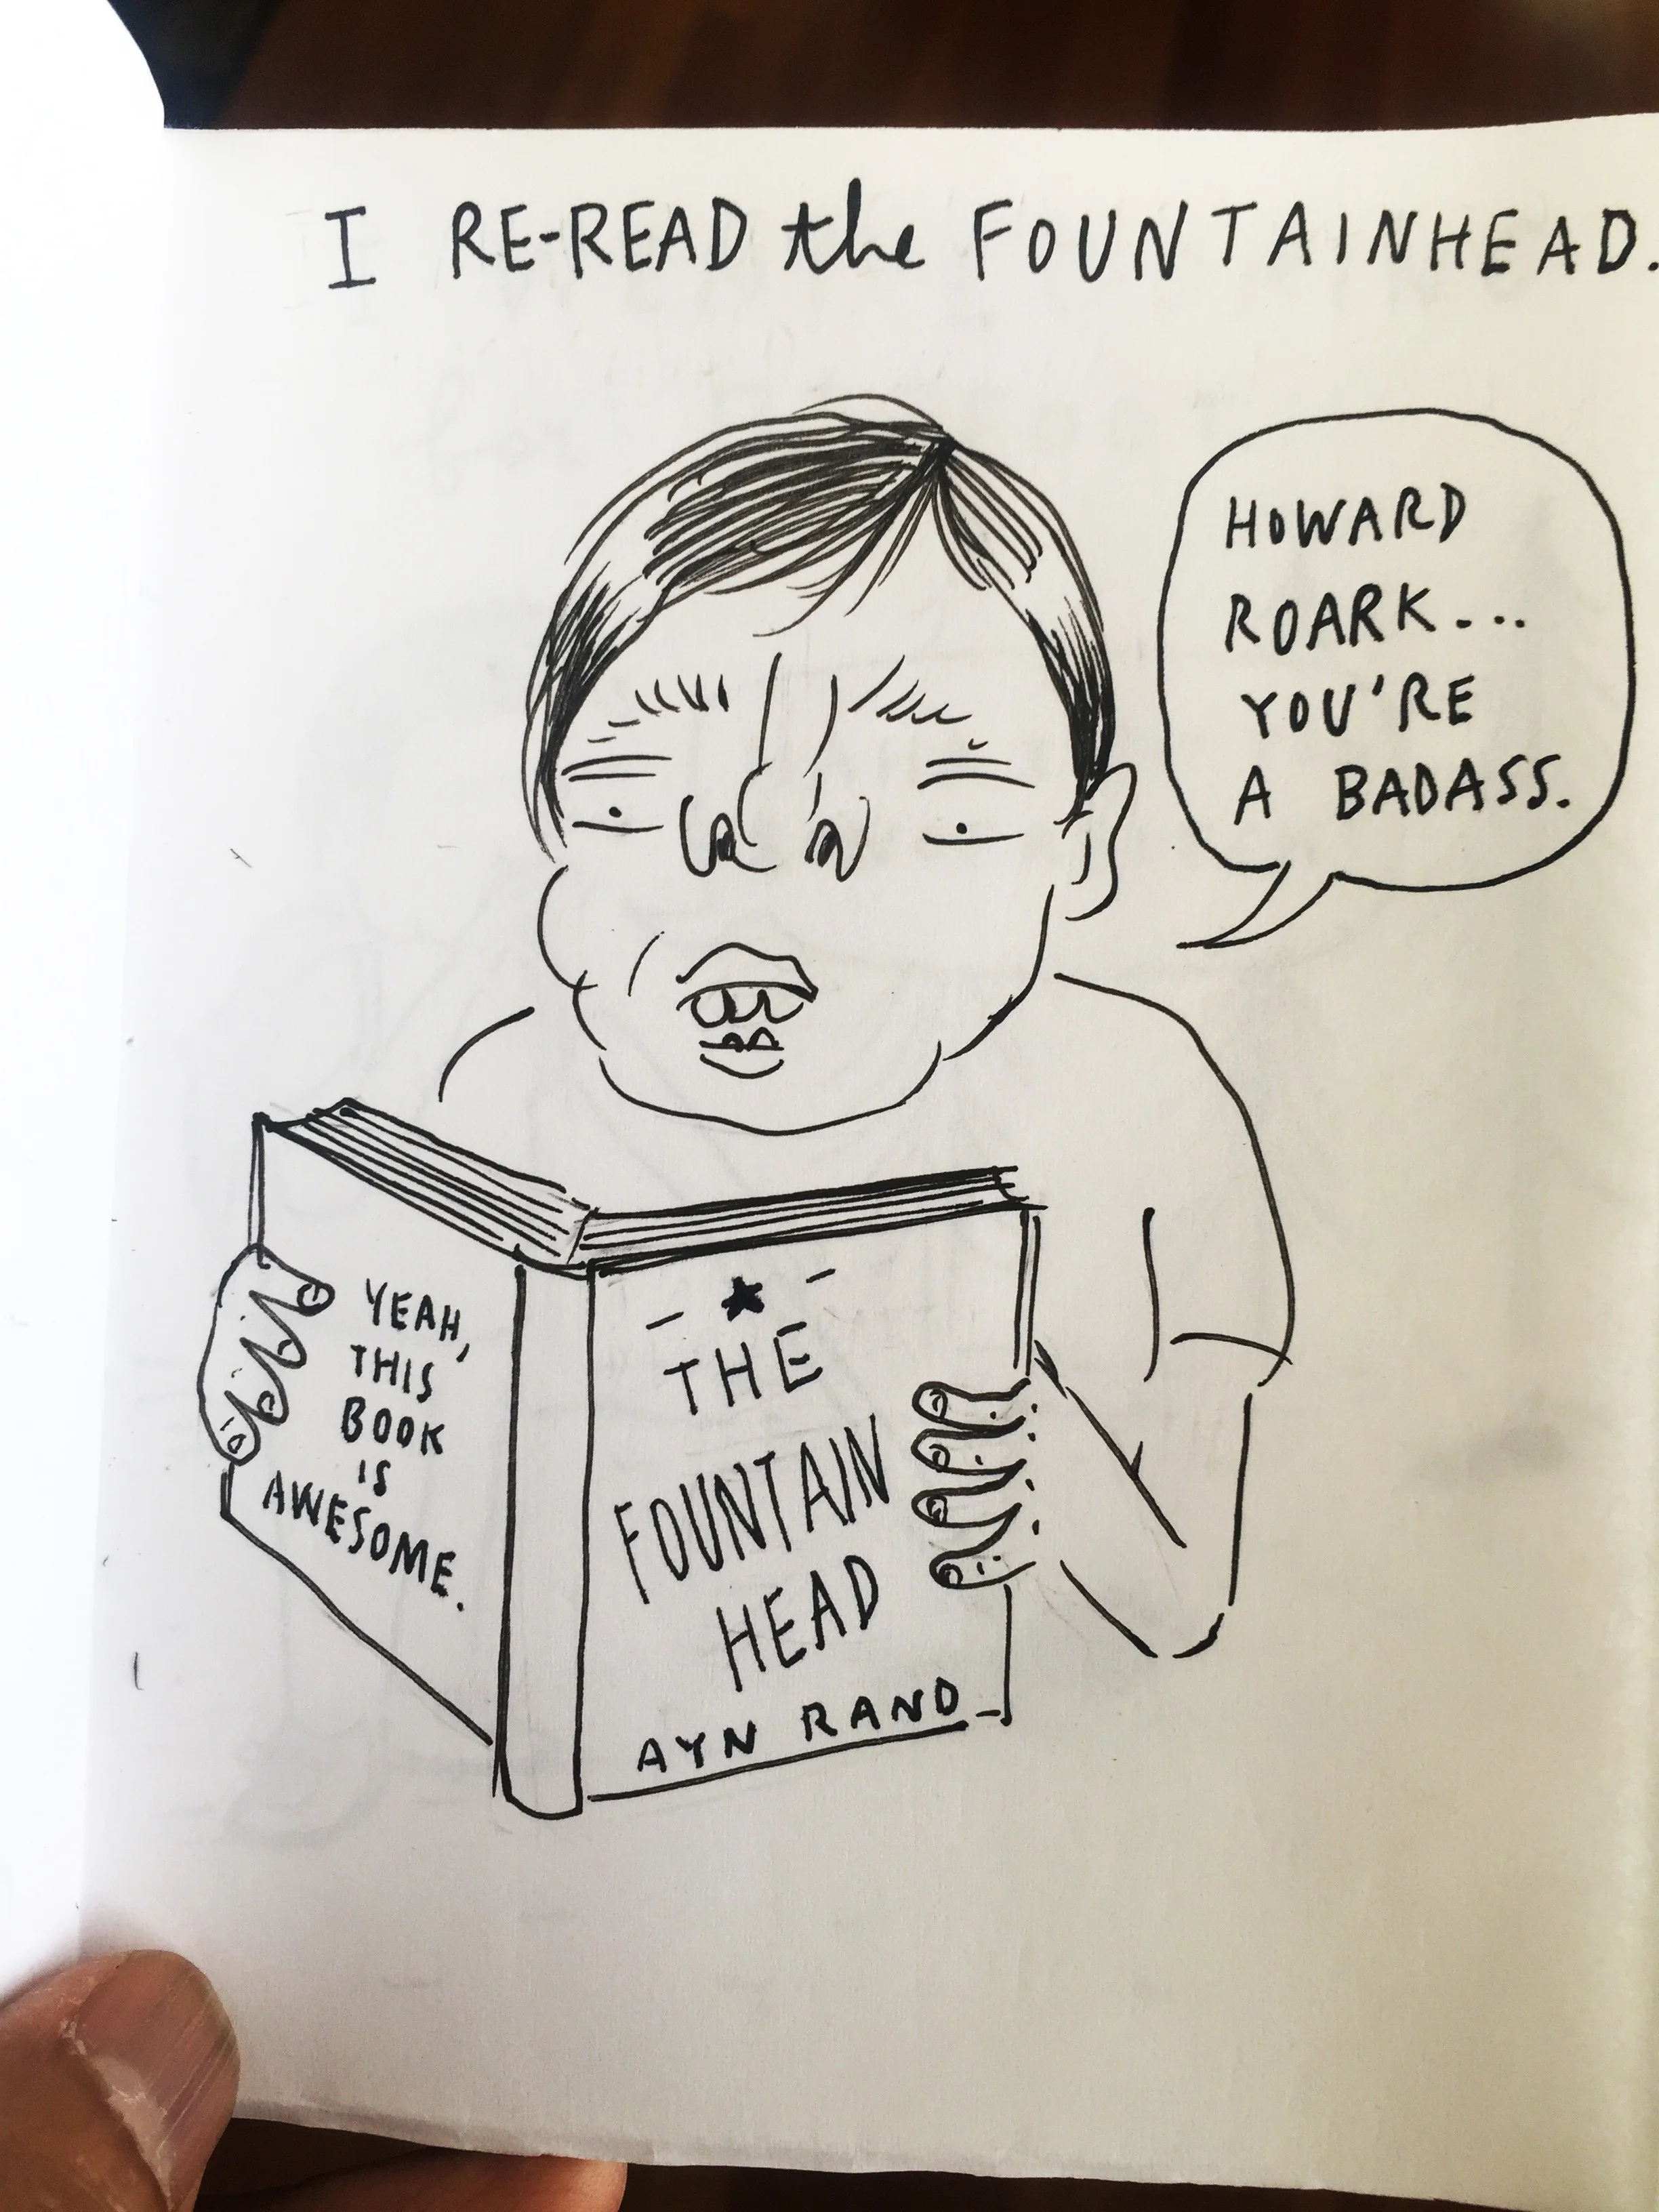 I RE-READ the FOUNTAINHEAD.
HOWARD
ROARK...
YOU'RE
A BADASS.
YEAH,
THIS
BOOK
IS
AWESOME.
THE
FOUNTAIN
HEAD
AYN RAND